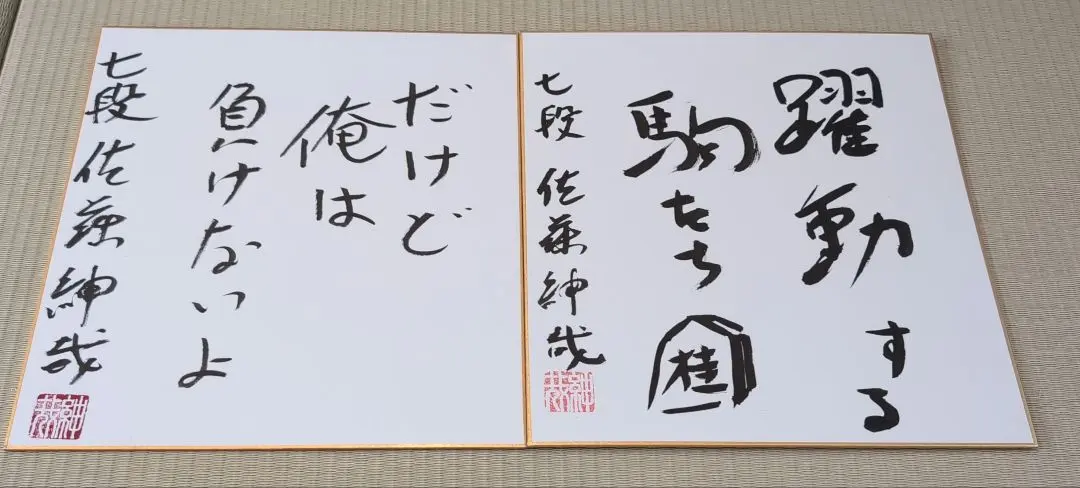 だけど
俺は
負けないよ
七段 佐藤紳哉
躍動する
駒たち
桂
七段 佐藤紳哉